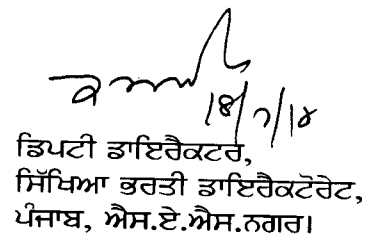 18/7/14
ਡਿਪਟੀ ਡਾਇਰੈਕਟਰ,
ਸਿੱਖਿਆ ਭਰਤੀ ਡਾਇਰੈਕਟੋਰੇਟ,
ਪੰਜਾਬ, ਐਸ.ਏ.ਐਸ.ਨਗਰ।